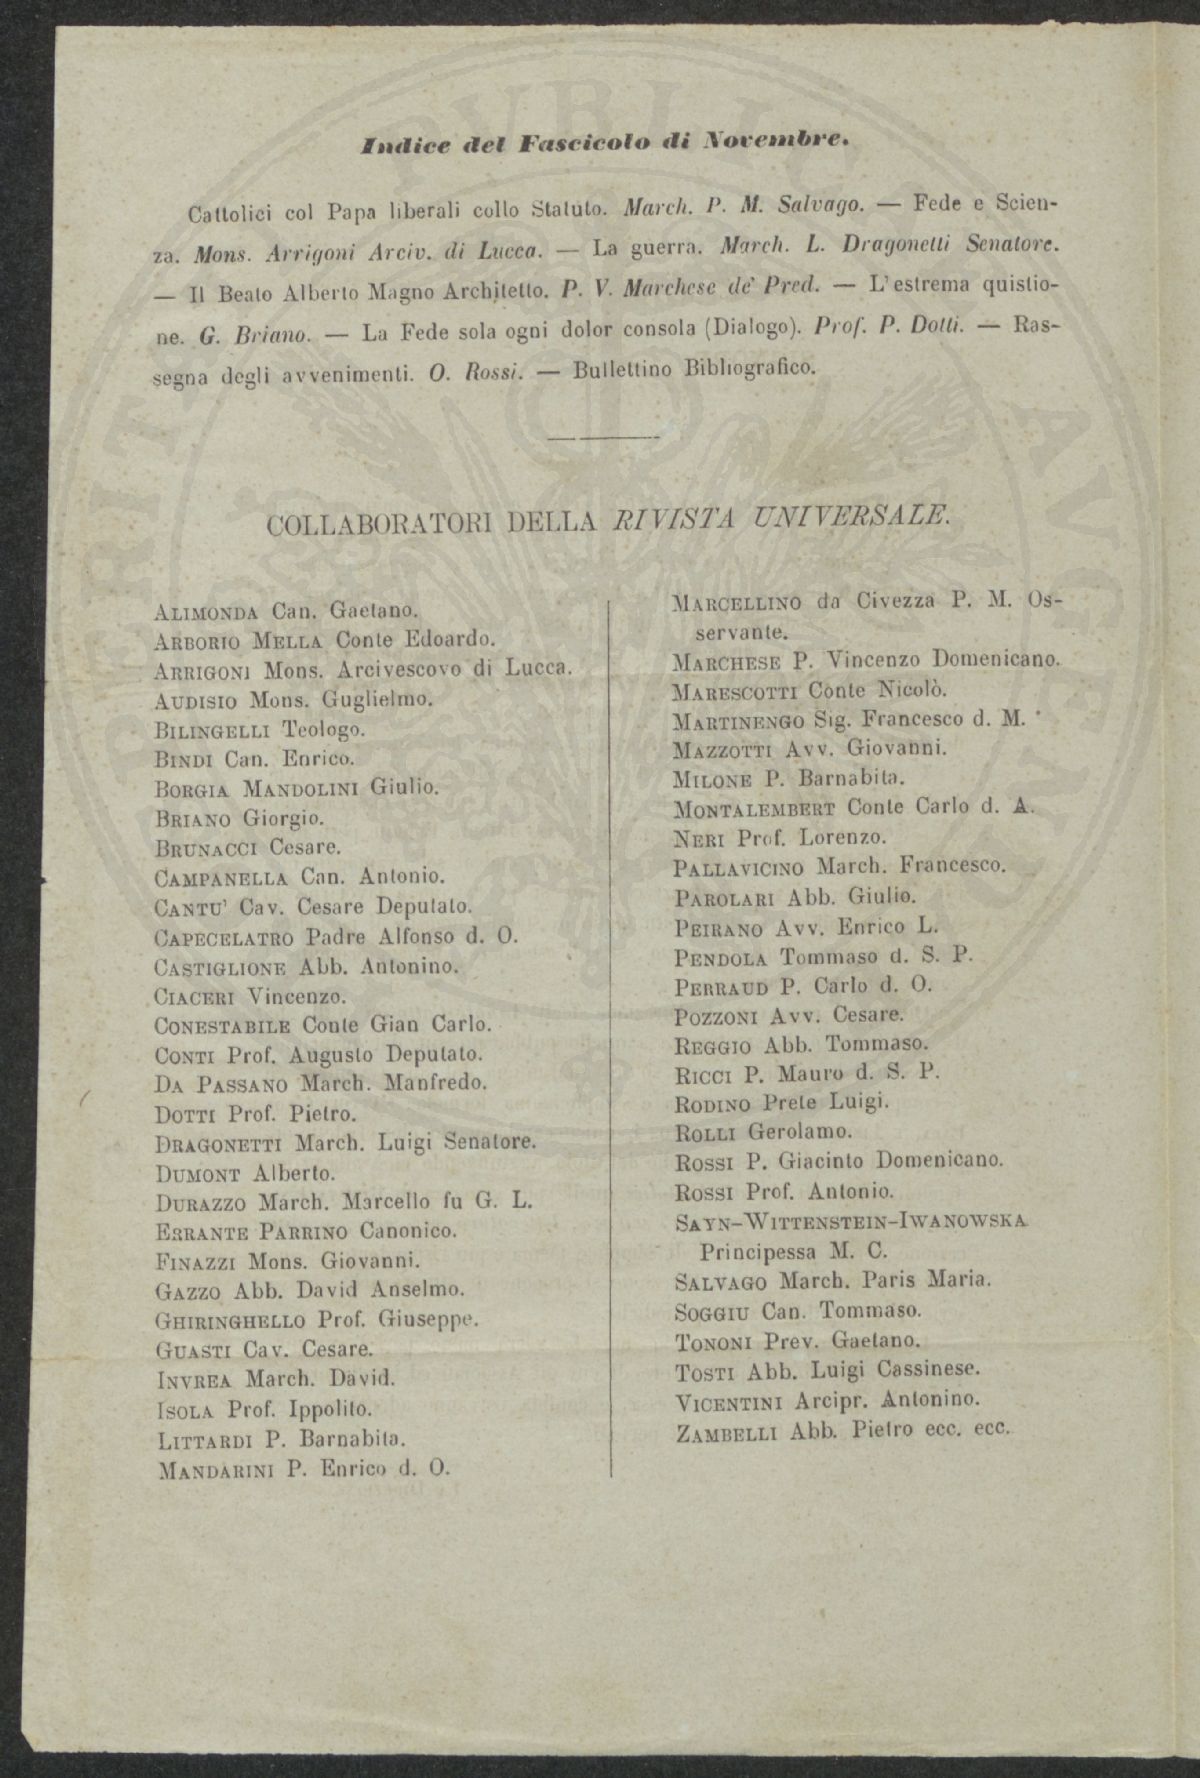 Indice del Fascicolo di Novembre.
Cattolici col Papa liberali collo Statuto. March. P. M. Salvago. — Fede e Scien-
za. Mons. Arrigoni Arciv. di Lucca. — La guerra. March. L. Dragonetti Senatore.
— Il Beato Alberto Magno Architetto. P. V. Marchese de' Pred. — L'estrema quistio-
ne. G. Briano. — La Fede sola ogni dolor consola (Dialogo). Prof. P. Dotti. — Ras-
segna degli avvenimenti. O. Rossi. — Bullettino Bibliografico.
COLLABORATORI DELLA RIVISTA UNIVERSALE.
ALIMONDA Can. Gaetano.
ARBORIO MELLA Conte Edoardo.
ARRIGONI Mons. Arcivescovo di Lucca.
AUDISIO Mons. Guglielmo.
BILINGELLI Teologo.
BINDI Can. Enrico.
BORGIA MANDOLINI Giulio.
BRIANO Giorgio.
BRUNACCI Cesare.
CAMPANELLA Can. Antonio.
CANTU' Cav. Cesare Deputato.
CAPECELATRO Padre Alfonso d. O.
CASTIGLIONE Abb. Antonino.
CIACERI Vincenzo.
CONESTABILE Conte Gian Carlo.
CONTI Prof. Augusto Deputato.
DA PASSANO March. Manfredo.
DOTTI Prof. Pietro.
DRAGONETTI March. Luigi Senatore.
DUMONT Alberto.
DURAZZO March. Marcello fu G. L.
ERRANTE PARRINO Canonico.
FINAZZI Mons. Giovanni.
GAZZO Abb. David Anselmo.
GHIRINGHELLO Prof. Giuseppe.
GUASTI Cav. Cesare.
INVREA March. David.
ISOLA Prof. Ippolito.
LITTARDI P. Barnabita.
MANDARINI P. Enrico d. O.
MARCELLINO da Civezza P. M. Os-
servante.
MARCHESE P. Vincenzo Domenicano.
MARESCOTTI Conte Nicolò.
MARTINENGO Sig. Francesco d. M.
MAZZOTTI Avv. Giovanni.
MILONE P. Barnabita.
MONTALEMBERT Conte Carlo d. A.
NERI Prof. Lorenzo.
PALLAVICINO March. Francesco.
PAROLARI Abb. Giulio.
PEIRANO Avv. Enrico L.
PENDOLA Tommaso d. S. P.
PERRAUD P. Carlo d. O.
POZZONI Avv. Cesare.
REGGIO Abb. Tommaso.
RICCI P. Mauro d. S. P.
RODINO Prete Luigi.
ROLLI Gerolamo.
ROSSI P. Giacinto Domenicano.
ROSSI Prof. Antonio.
SAYN-WITTENSTEIN-IWANOWSKA
Principessa M. C.
SALVAGO March. Paris Maria.
SOGGIU Can. Tommaso.
TONONI Prev. Gaetano.
TOSTI Abb. Luigi Cassinese.
VICENTINI Arcipr. Antonino.
ZAMBELLI Abb. Pietro ecc. ecc.